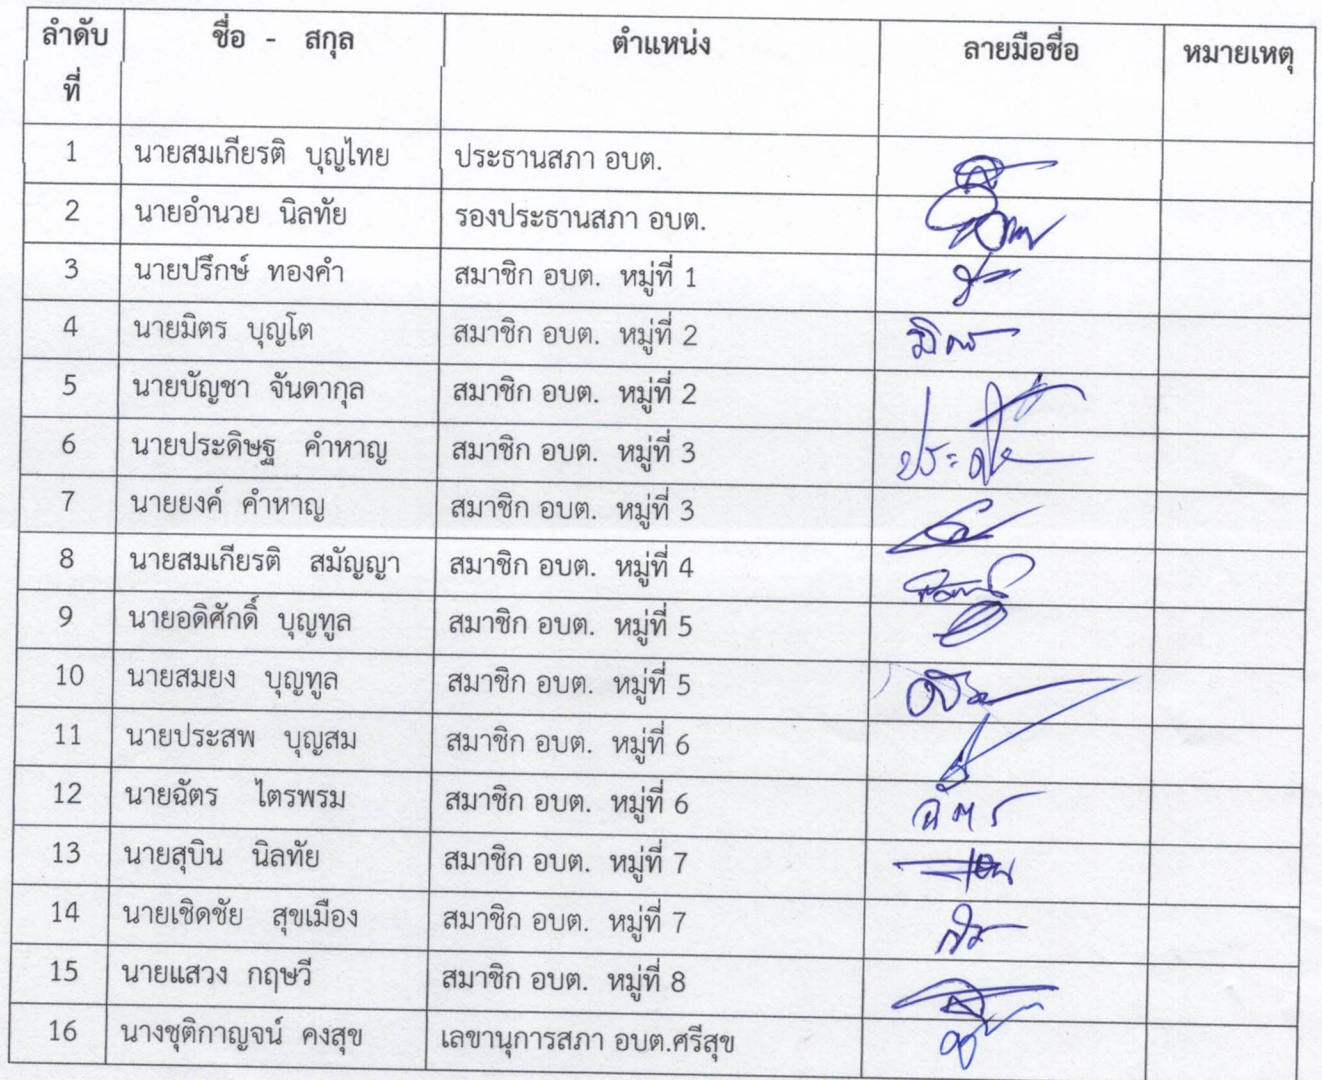 ลำดับที่ ชื่อ - สกุล ตำแหน่ง ลายมือชื่อ หมายเหตุ
1 นายสมเกียรติ บุญไทย ประธานสภา อบต.
2 นายอำนวย นิลทัย รองประธานสภา อบต.
3 นายปรึกษ์ ทองคำ สมาชิก อบต. หมู่ที่ 1
4 นายมิตร บุญโต สมาชิก อบต. หมู่ที่ 2 มิตร
5 นายบัญชา จันดากุล สมาชิก อบต. หมู่ที่ 2
6 นายประดิษฐ คำหาญ สมาชิก อบต. หมู่ที่ 3
7 นายยงค์ คำหาญ สมาชิก อบต. หมู่ที่ 3
8 นายสมเกียรติ สมัญญา สมาชิก อบต. หมู่ที่ 4
9 นายอดิศักดิ์ บุญทูล สมาชิก อบต. หมู่ที่ 5
10 นายสมยง บุญทูล สมาชิก อบต. หมู่ที่ 5
11 นายประสพ บุญสม สมาชิก อบต. หมู่ที่ 6
12 นายฉัตร ไตรพรม สมาชิก อบต. หมู่ที่ 6 ฉัตร
13 นายสุบิน นิลทัย สมาชิก อบต. หมู่ที่ 7
14 นายเชิดชัย สุขเมือง สมาชิก อบต. หมู่ที่ 7
15 นายแสวง กฤษวี สมาชิก อบต. หมู่ที่ 8
16 นางชุติกาญจน์ คงสุข เลขานุการสภา อบต.ศรีสุข